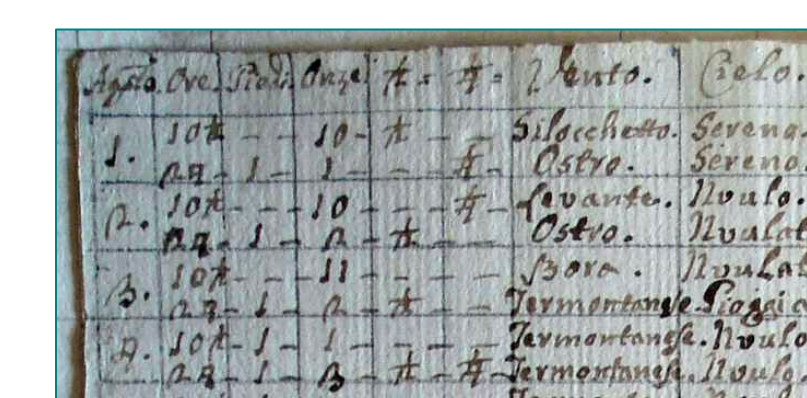 Agsto. Ore. Piedi. Onze. Vento. Cielo
1. 10 - - 10 - - - Silocchetto. Sereno
22 - 1 - 1 - - - Ostro. Sereno.
2. 10 - - - 10 - - - Levante. Nvulo.
22 - 1 - 2 - - - Ostro. Nvulat
3. 10 - - - 11 - - - - Bora. Nvulat
22 - 1 - 2 - - - Termontanese. Pioggia
4. 10 - 1 - 1 - - - - Termontanese. Nvulo
22 - 1 - 3 - - Termontanese. Nvulo.